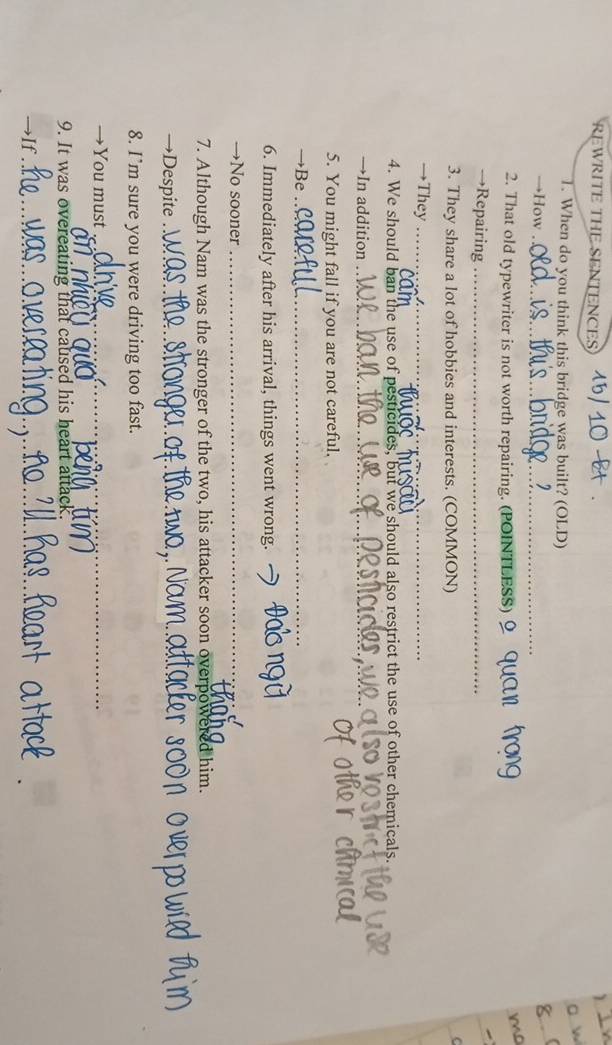 REWRITE THE SENTENCES 16/10 - bt.
1. When do you think this bridge was built? (OLD)
→How old is this bridge?
2. That old typewriter is not worth repairing. (POINTLESS) o quan trong
→Repairing
3. They share a lot of hobbies and interests. (COMMON)
→They
cấm thuốc trừ sâu
4. We should ban the use of pesticides, but we should also restrict the use of other chemicals.
→In addition we ban the use of pesticides, we also restrict the use
of other chmical
5. You might fall if you are not careful.
→Be carefull
6. Immediately after his arrival, things went wrong. → Đảo ngữ
→No sooner
thắng
7. Although Nam was the stronger of the two, his attacker soon overpowered him.
→Despite was the stronger of the two, Nam attacker soon overpowied him
8. I'm sure you were driving too fast.
→You must drive
ăn nhiều quá
9. It was overeating that caused his heart attack.
→If he was overeating, he'll has heart attack.